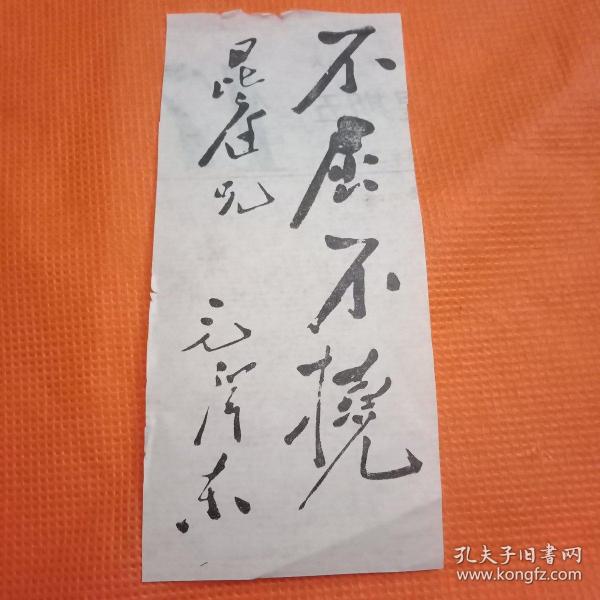 不屈不撓
昆产兄
毛泽东
孔夫子旧书网
www.kongfz.com